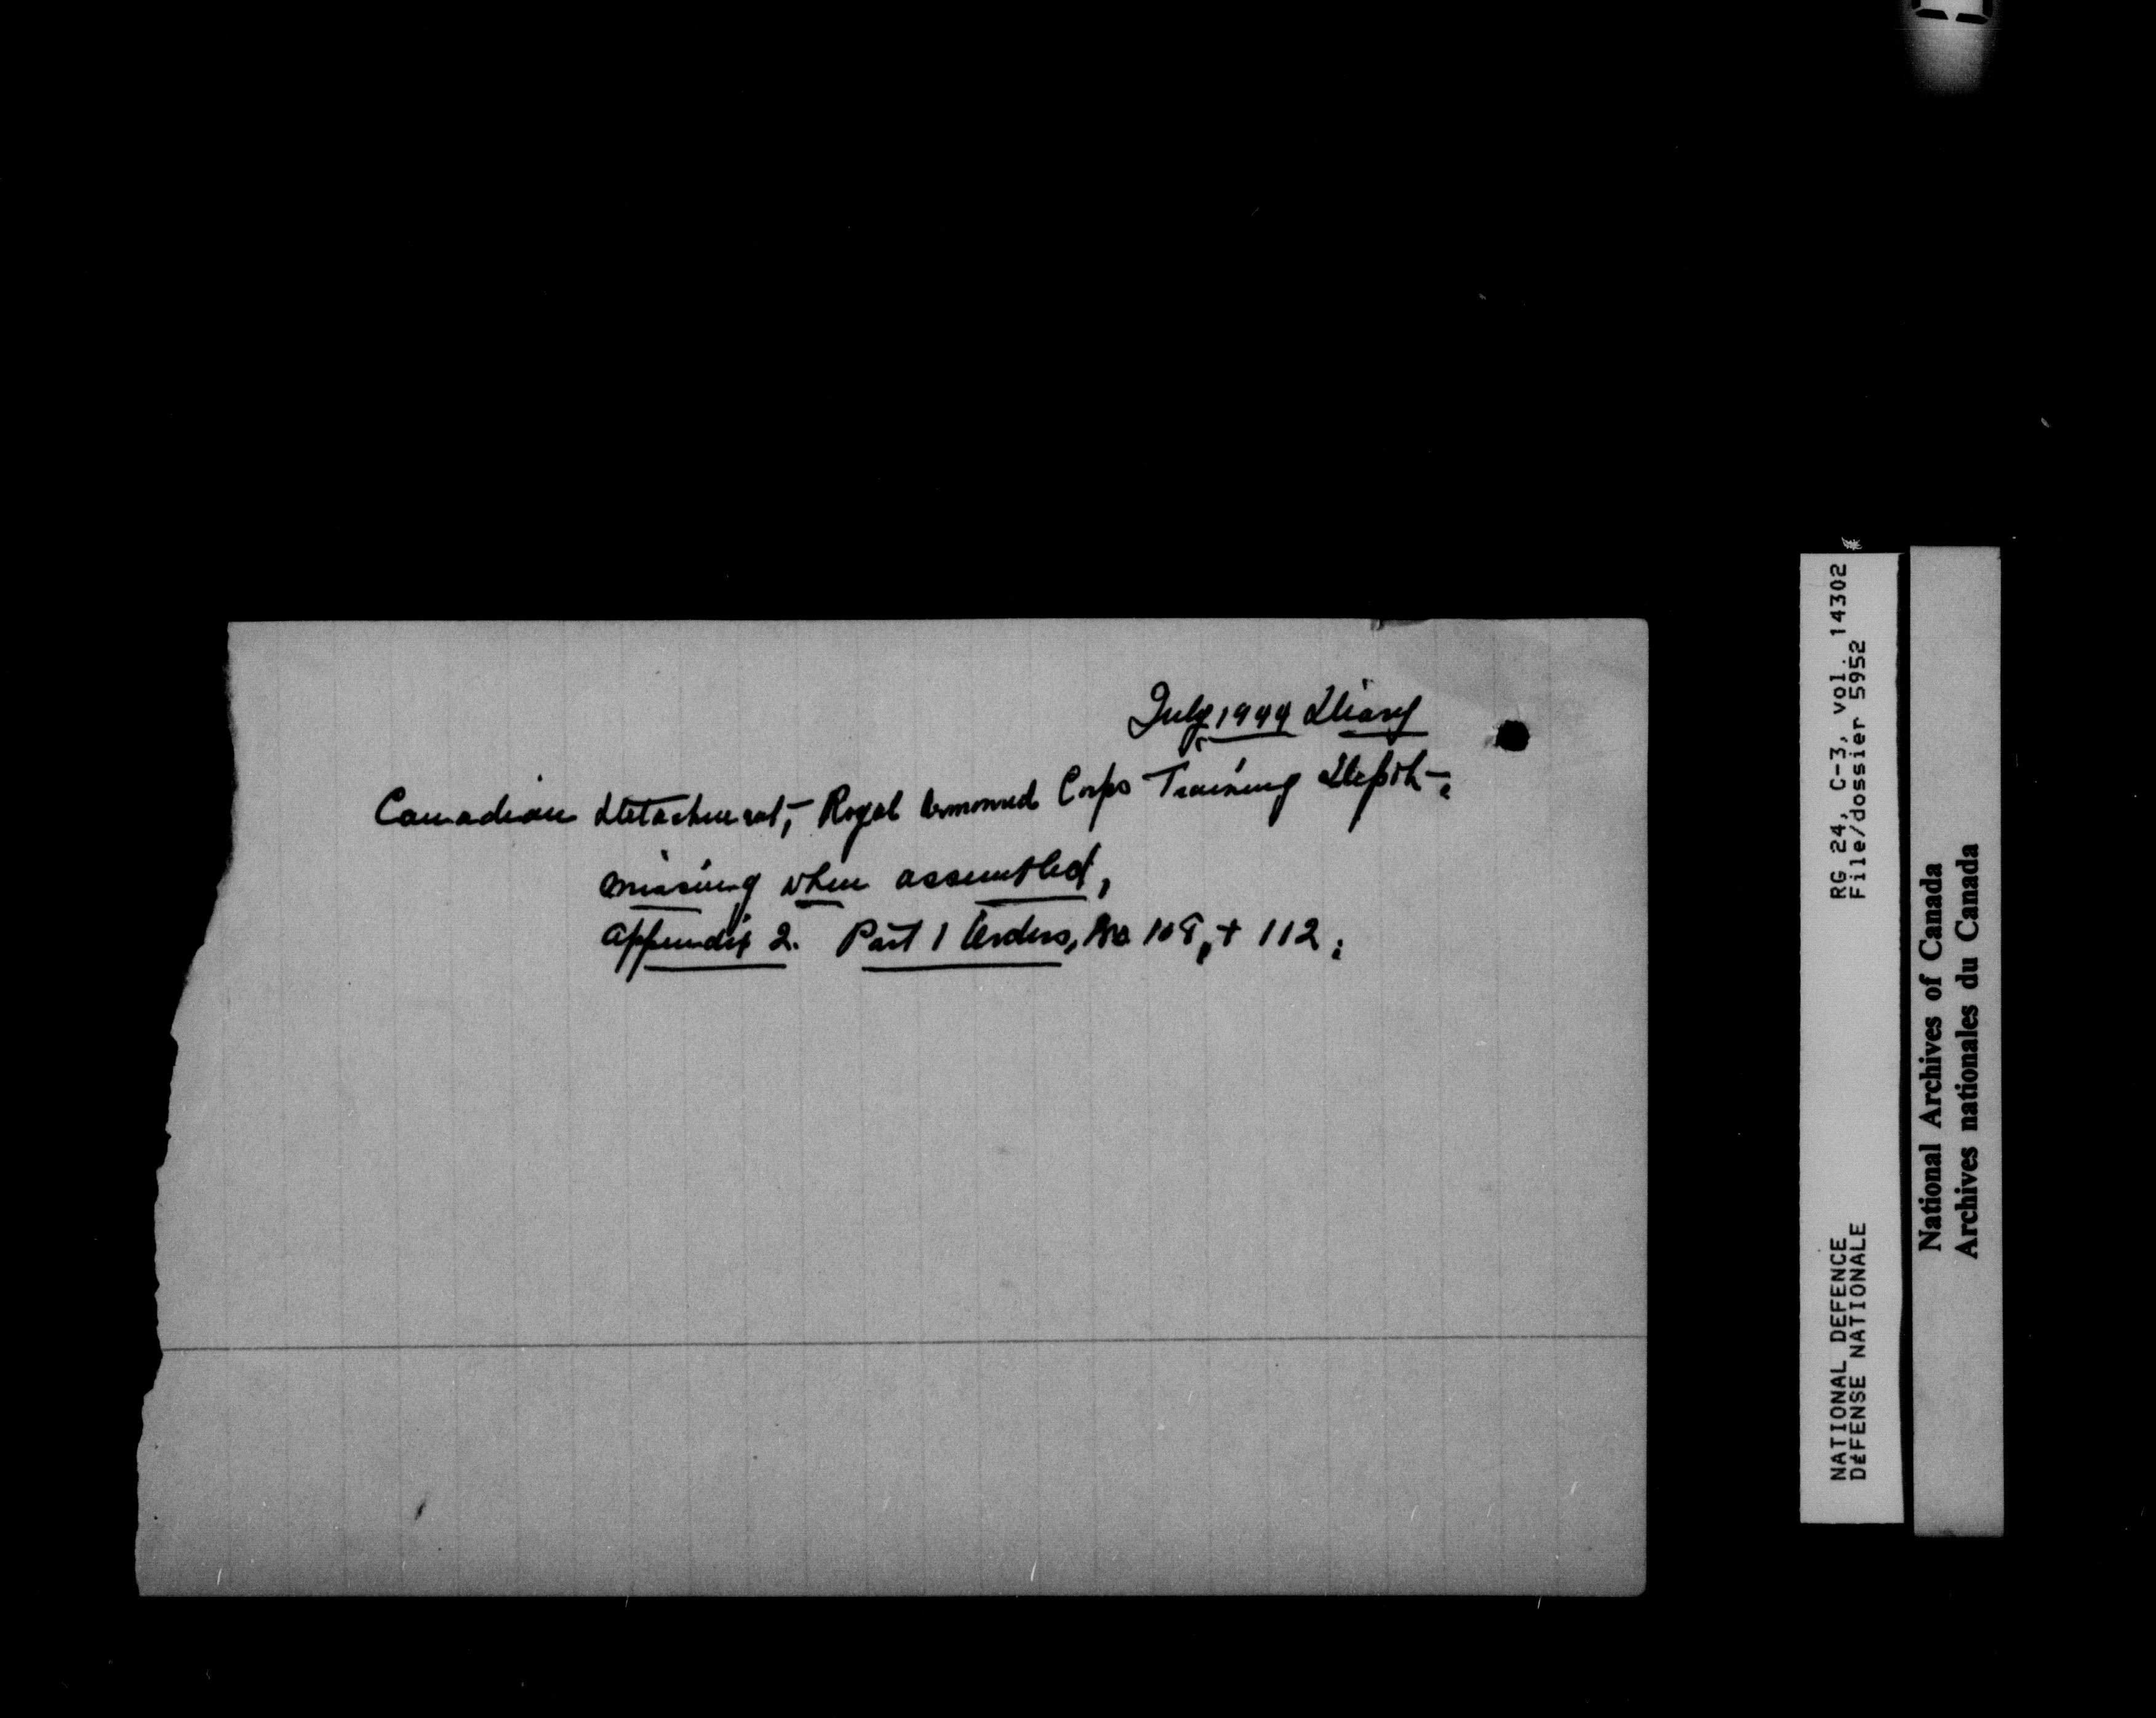 July, 1944 Diary
Canadian Detachment, Royal Armoured Corps Training Depôt.
missing when assembled,
Appendix 2. Part 1 Orders, No 108, + 112.
RG 24, C-3, vol. 14302
File/dossier 5952
NATIONAL DEFENCE
DÉFENSE NATIONALE
National Archives of Canada
Archives nationales du Canada